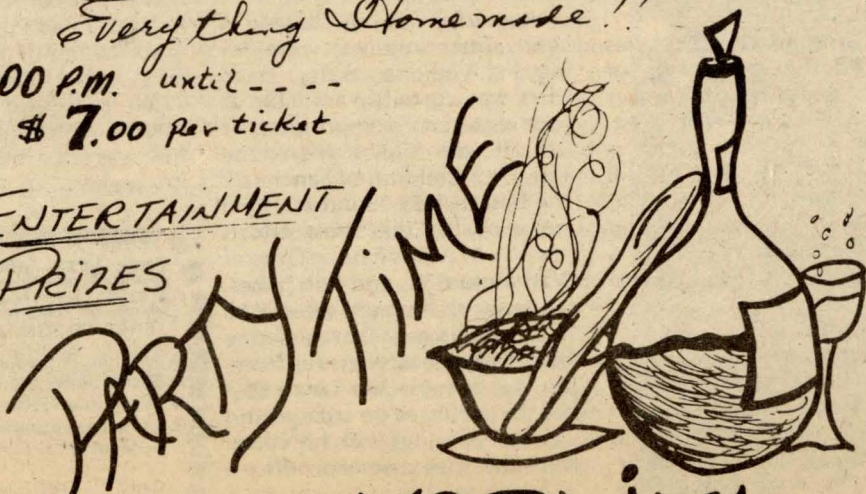 Everything Homemade!!
00 P.M. until - - - - -
$ 7.00 per ticket
ENTERTAINMENT
PRIZES
PARTY TIME